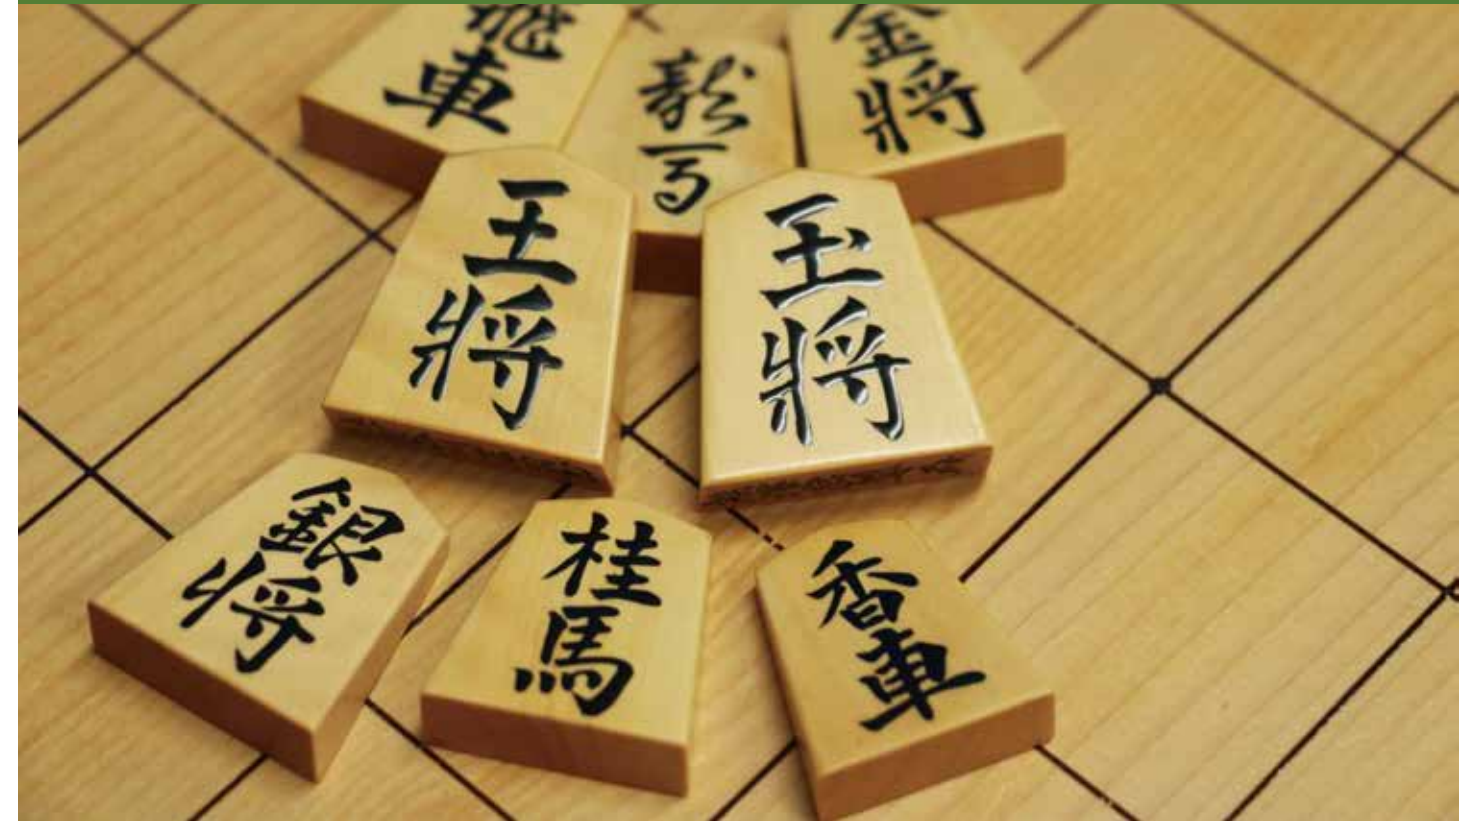 飛車
龍馬
金將
王將
玉將
銀將
桂馬
香車